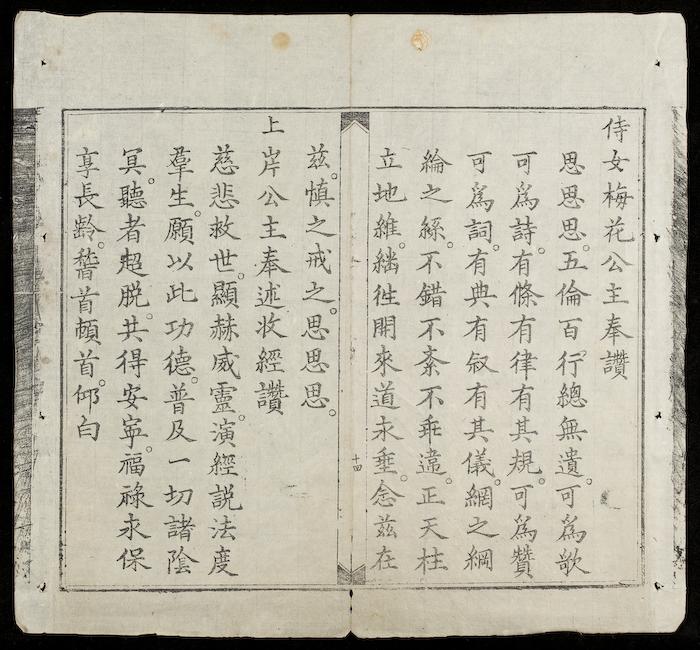 侍女梅花公主奉讚
思思思。五倫百行總無遺。可為歌
可為詩。有條有律有其規。可為贊
可為詞。有典有叙有其儀。綱之綱
綸之絲。不錯不紊不乖違。正天柱
立地維。繼徃開來道永垂。念兹在
兹。慎之戒之。思思思。
上岸公主奉述收經讚
慈悲救世。顯赫威靈。演經説法度
羣生。願以此功德。普及一切諸陰
冥。聽者超脱。共得安寧。福祿永保
享長齡。稽首頓首。仰白
十四